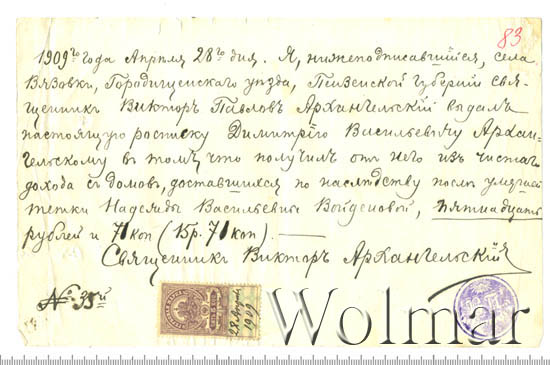 83
1909го года Апреля 28го дня. Я, нижеподписавшійся, села
Вязовки, Городищенскаго уѣзда, Пензенской губерніи Свя-
щенникъ Викторъ Павловъ Архангельскій выдалъ
настоящую росписку Димитрію Васильевичу Архан-
гельскому въ томъ, что получилъ отъ него изъ чистаго
дохода съ домовъ, доставшихся по наслѣдству послѣ умершей
тетки Надежды Васильевны Войденовой, пятнадцать
рублей и 71 коп (15р. 71 коп). —
Священникъ Викторъ Архангельскій
№ 35й
28 Апрѣля
1909
Wolmar